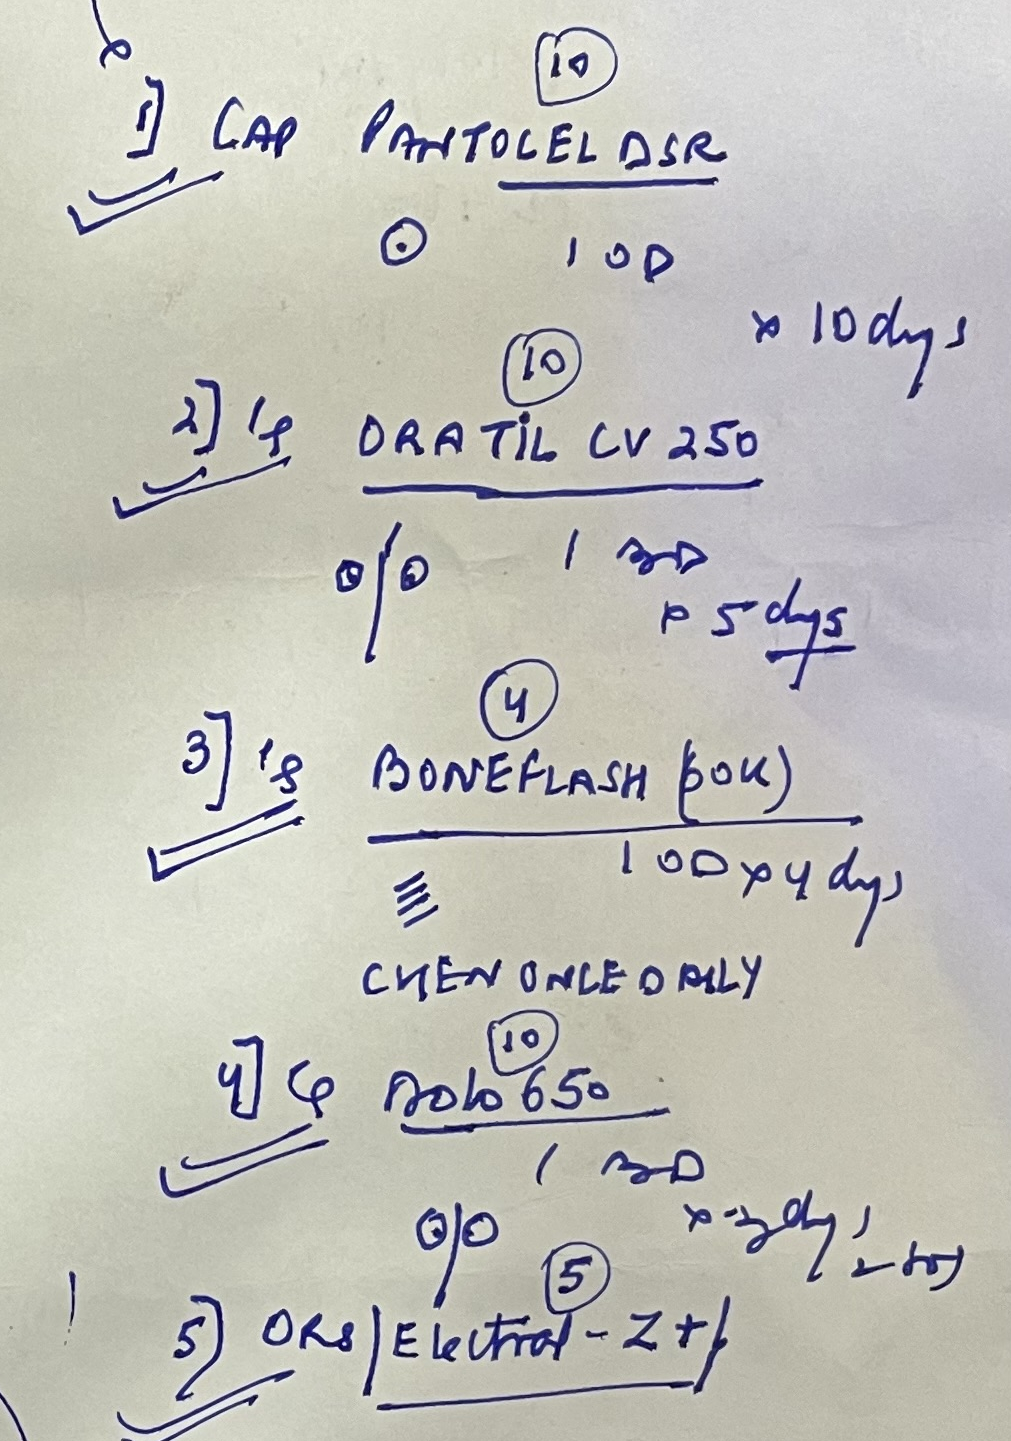 10
1] CAP PANTOCEL DSR
1 OD
x 10 dys
10
2] ORATIL CV 250
1 BD
x 5 dys
4
3] BONEFLASH (60K)
1 OD x 4 dys
CHEW ONCE DAILY
10
4] Dolo 650
1 BD
dys
5
5) ORS / Electral - Z + /